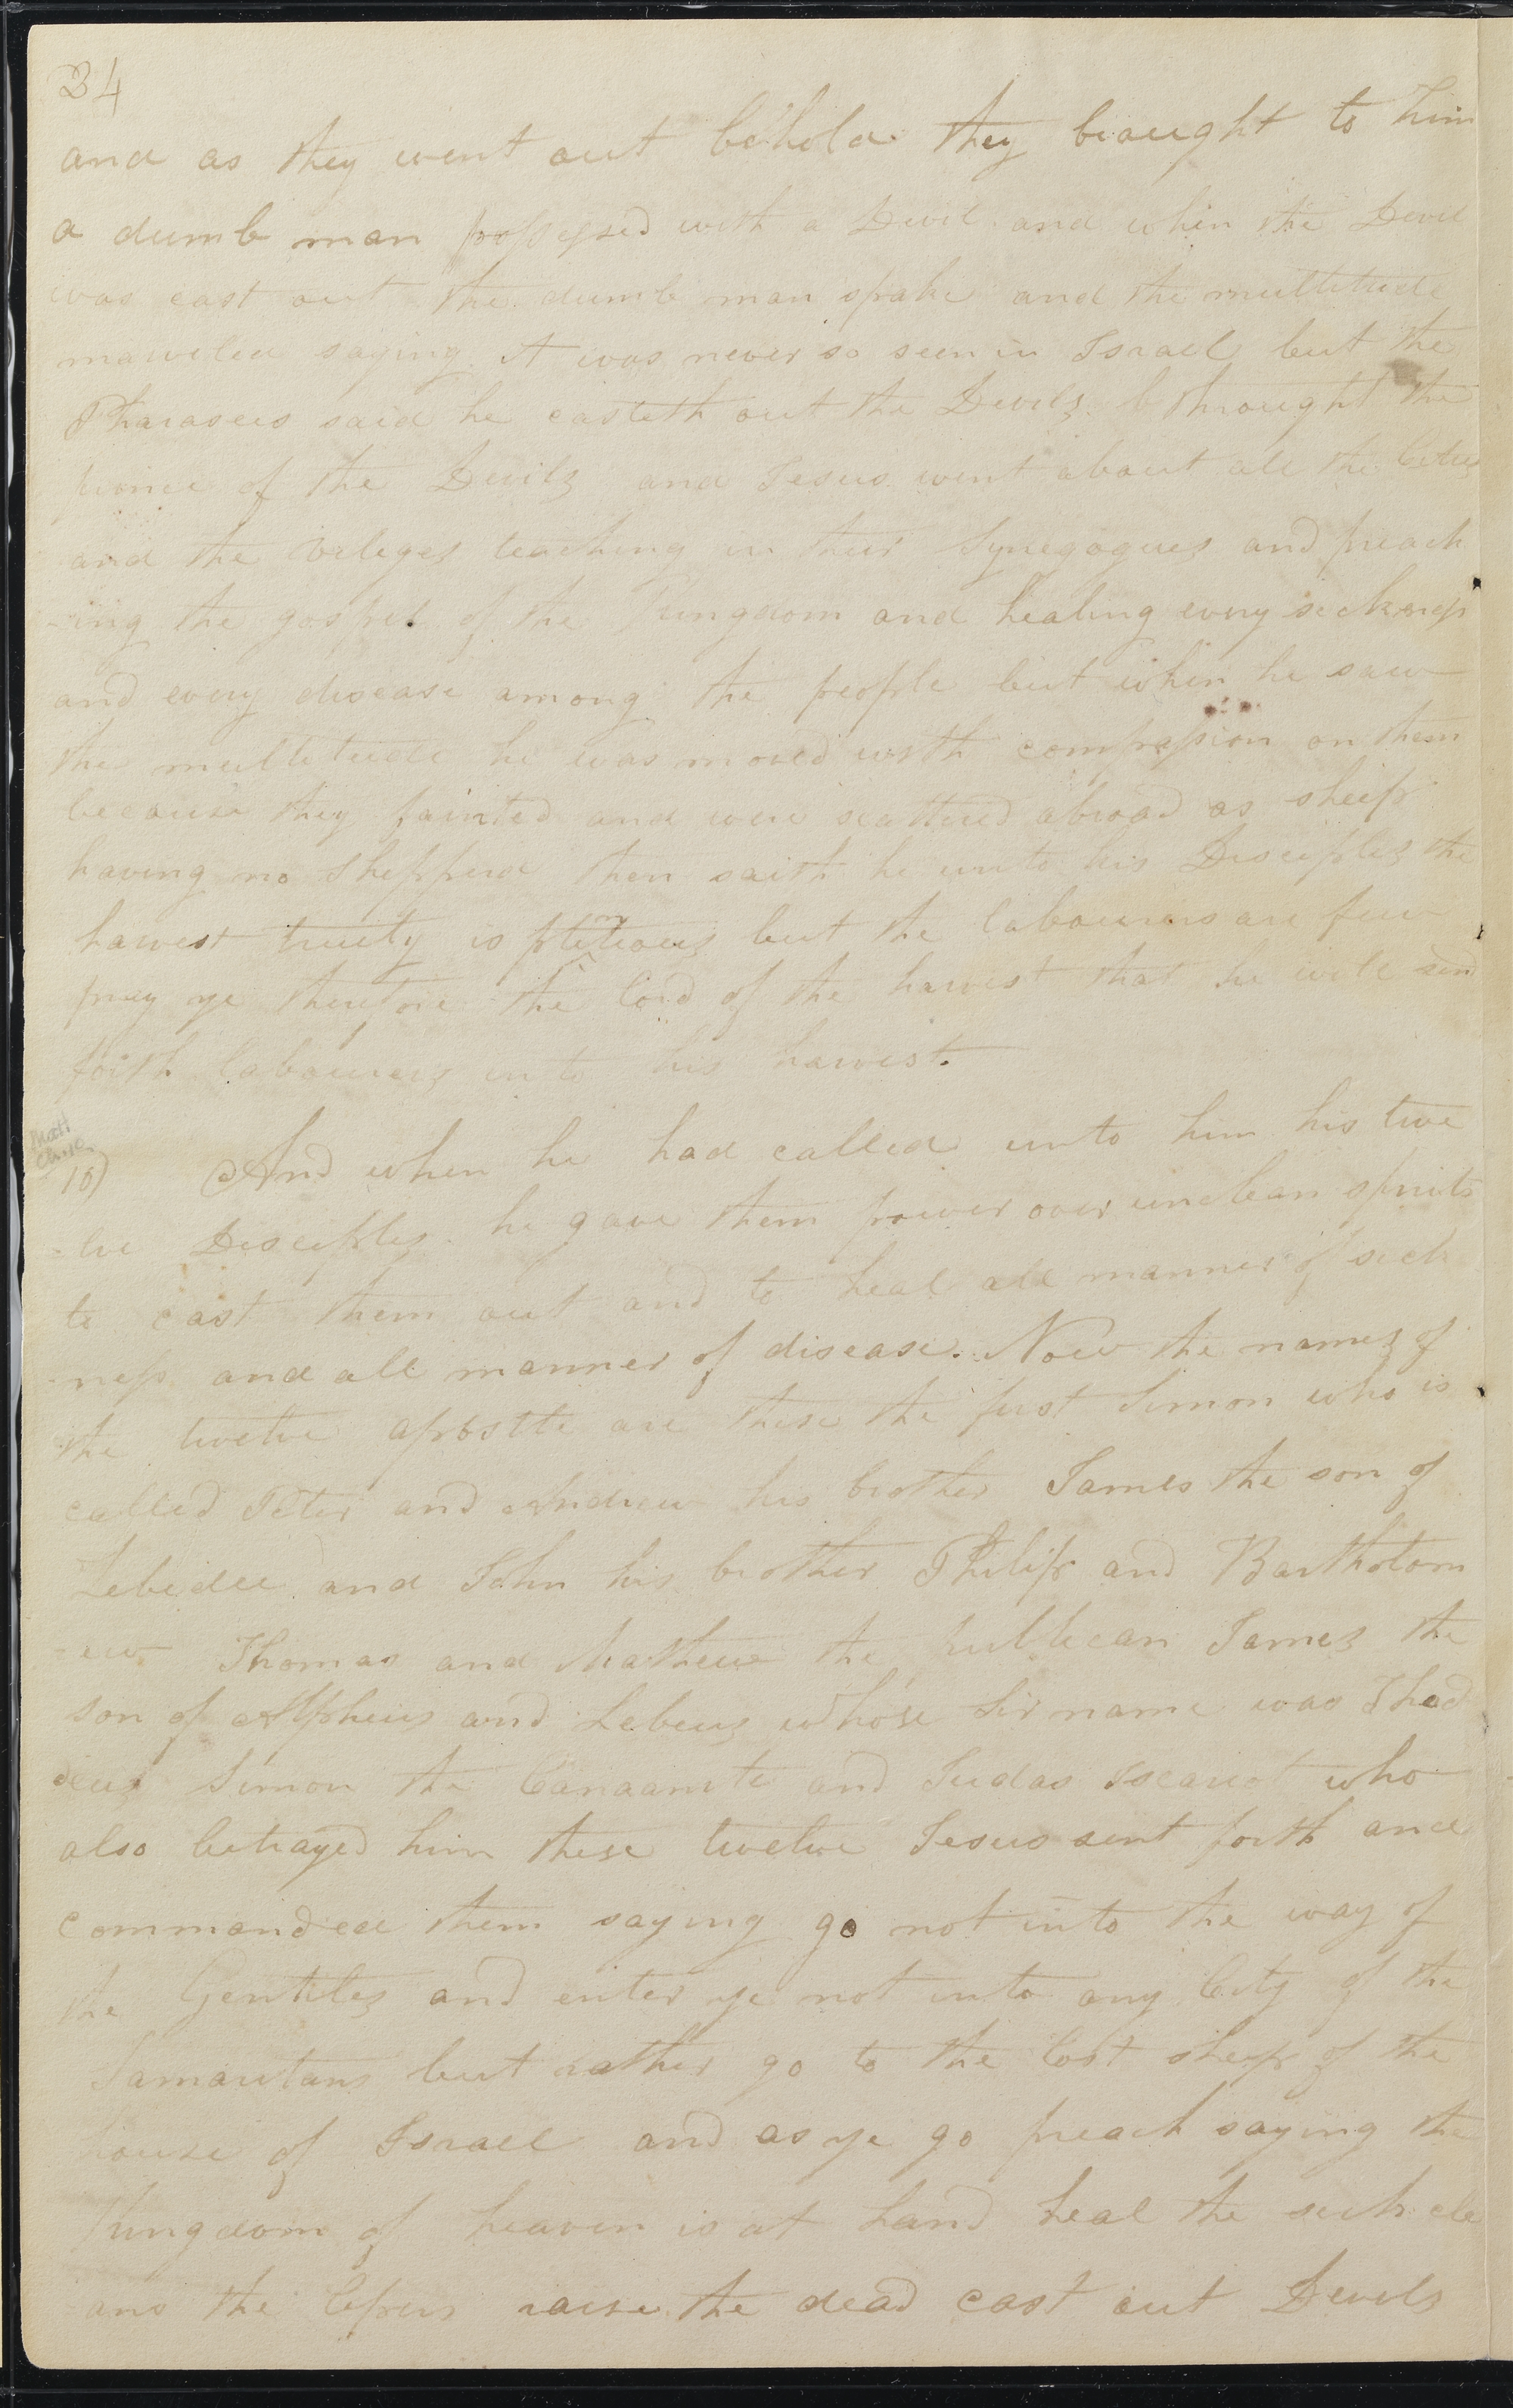 24
and as they went out behold they brought to him
a dumb man possessed with a Devil and when the Devil
was cast out the dumb man spake and the multitude
marveled saying it was never so seen in Israel but the
Pharasees said he casteth out the Devils throught the
prince of the Devils and Jesus went about all the Cities
and the vileges teaching in their Synegogues and preach
-ing the gospel of the kingdom and healing every sickness
and every disease among the people but when he saw
the multitude he was moved with compassion on them
because they fainted and were scattered abroad as sheep
having no Shepperd then saith he unto his Disciples the
harvest truely is plentious but the labourers are few
pray ye therefore the lord of the harvest that he will send
forth labourers into his harvest.
Matt
Ch. 10
10) And when he had called unto him his twe
-lve Disciples he gave them power over unclean spirits
to cast them out and to heal all manner of sick
-ness and all manner of disease. Now the names of
the twelve apostle are these the first Simon who is
called Peter and Andrew his brother James the son of
Zebedee and John his brother Philip and Bartholom
-ew Thomas and Mathew the publican James the
son of Alpheus and Lebeus whose Sirname was Thad
deus Simon the Canaanite and Judas Iscariot who
also betrayed him these twelve Jesus sent forth and
commanded them saying go not into the way of
the Gentiles and enter ye not into any City of the
Samaritans but rather go to the lost sheep of the
house of Israel and as ye go preach saying the
kingdom of heaven is at hand heal the sick cle
ans the lepers raise the dead cast out Devils